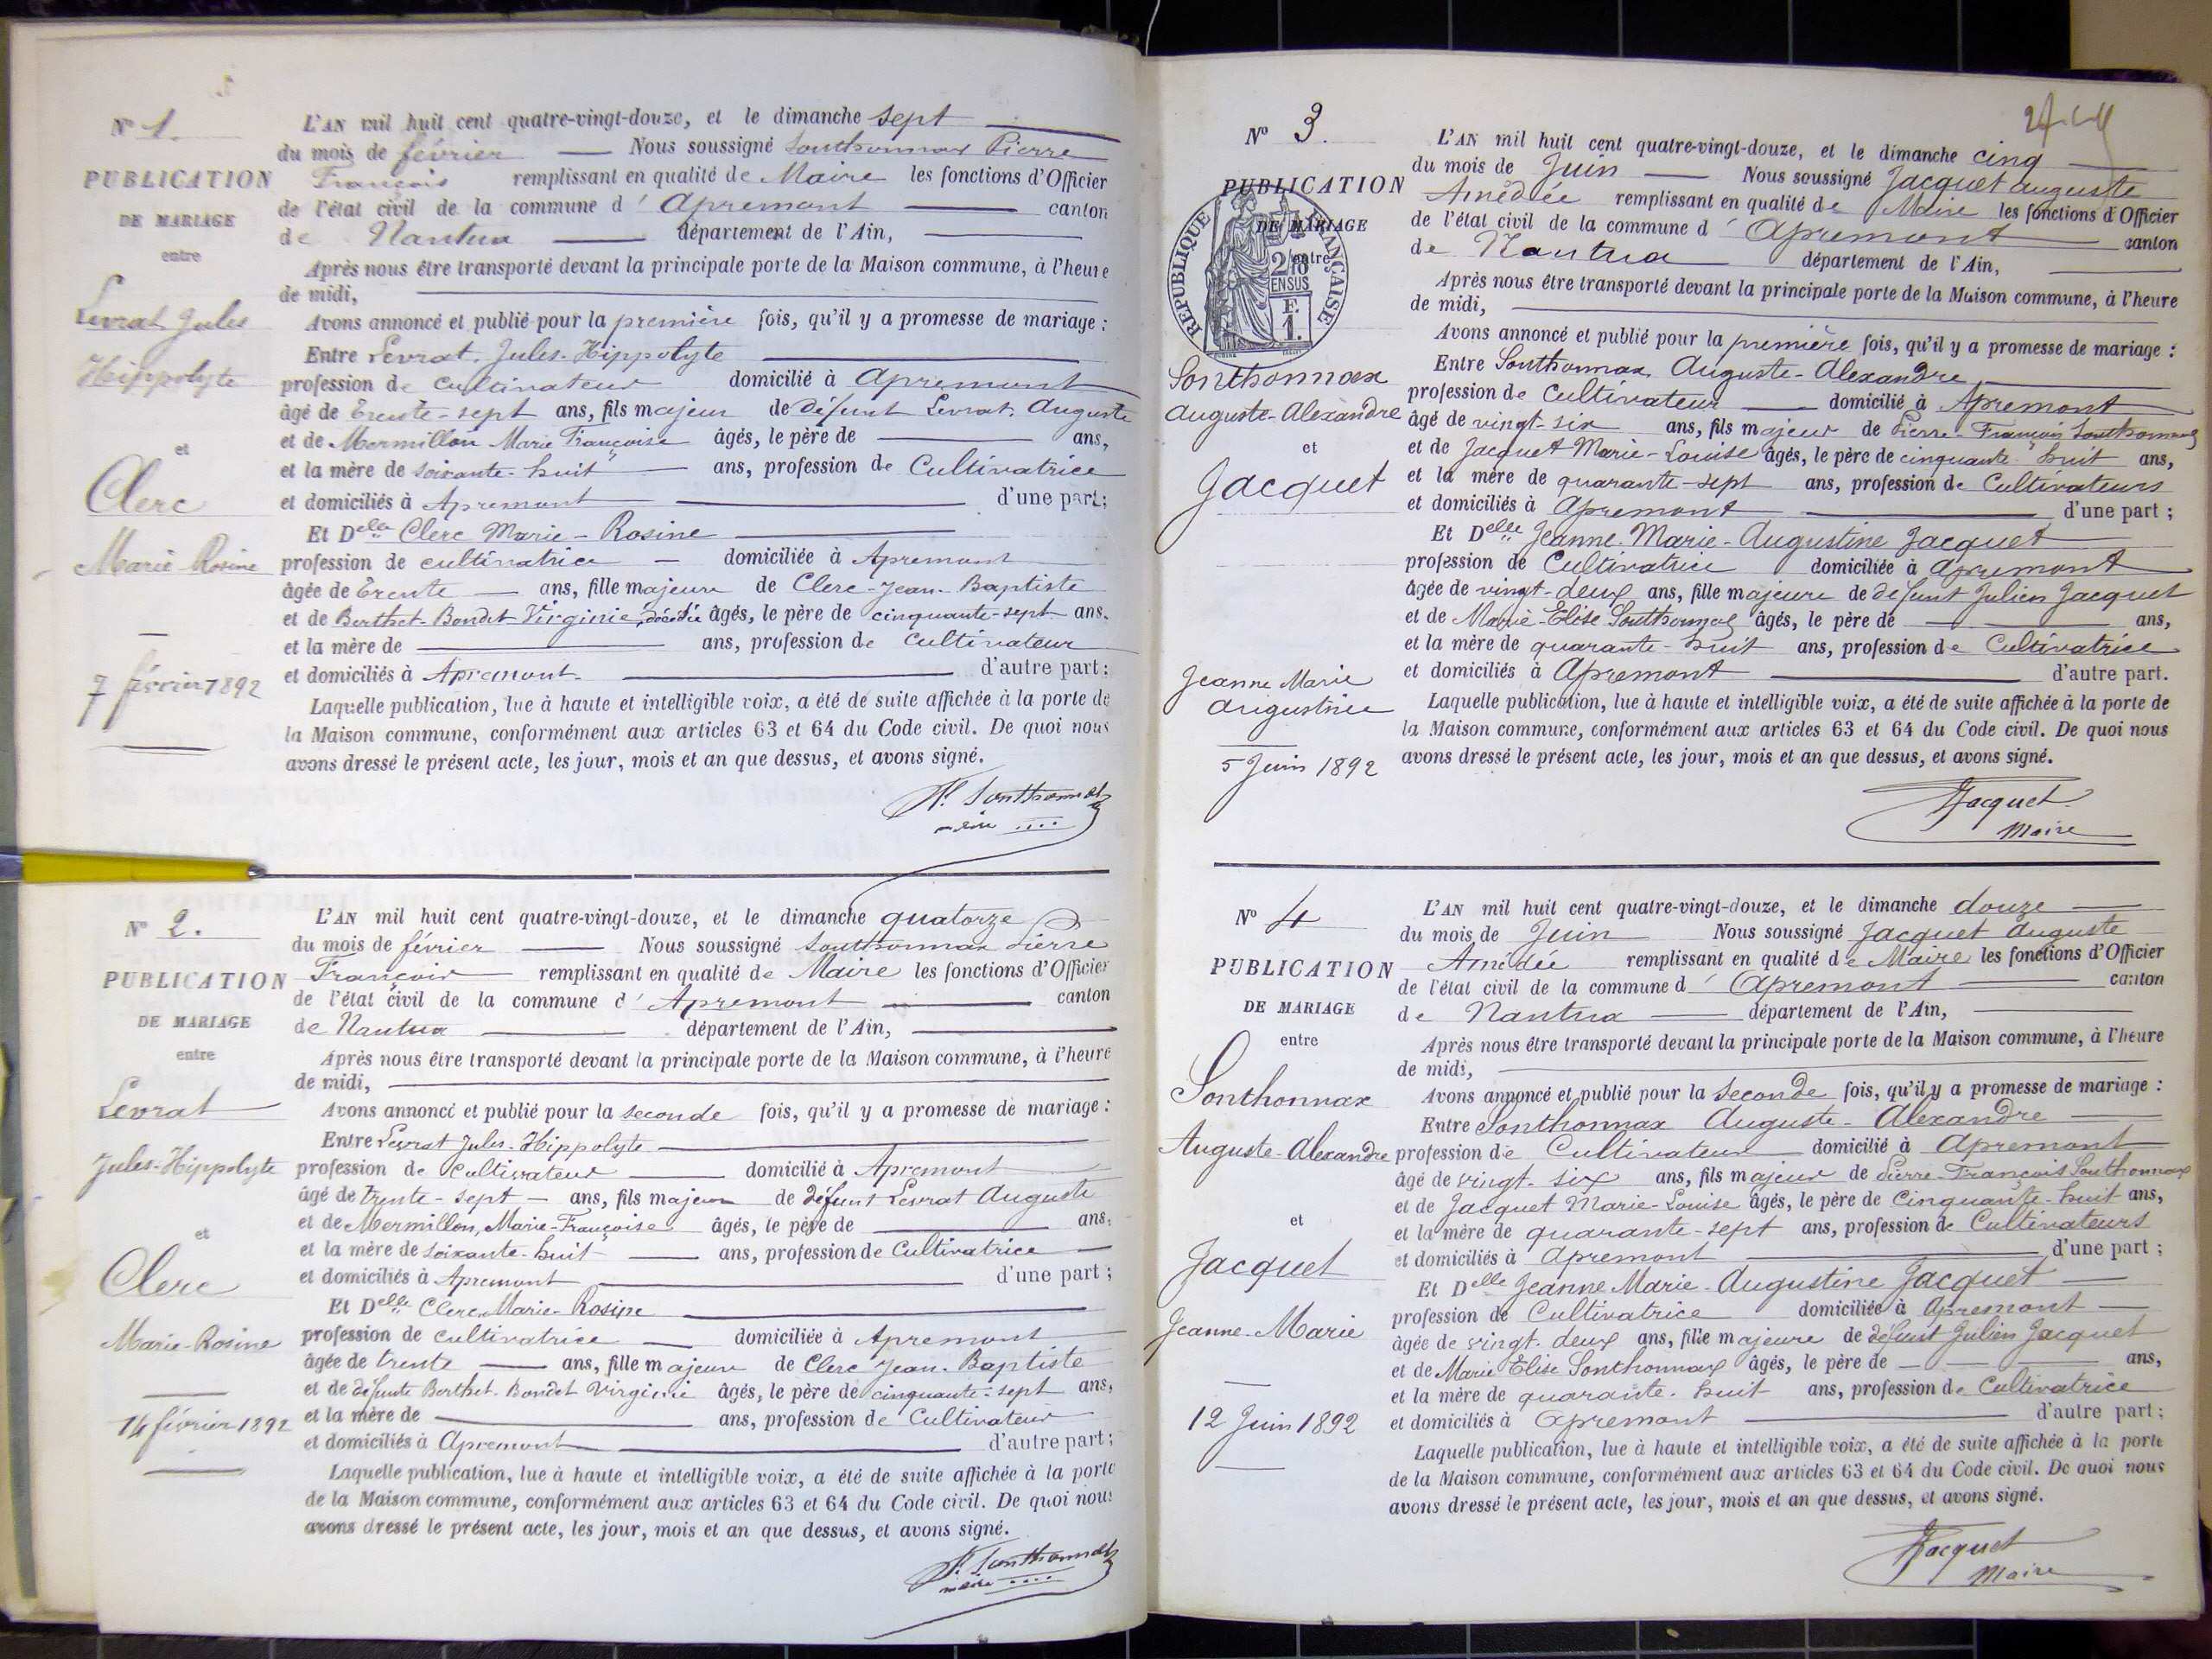 N° 1.
PUBLICATION
DE MARIAGE
entre
Levrat Jules
Hippolyte
et
Clerc
Marie Rosine
7 février 1892
L'AN mil huit cent quatre-vingt-douze, et le dimanche sept
du mois de février Nous soussigné Sonthonnax Pierre
François remplissant en qualité de Maire les fonctions d'Officier
de l'état civil de la commune d' Apremont canton
de Nantua département de l'Ain,
Après nous être transporté devant la principale porte de la Maison commune, à l'heure
de midi,
Avons annoncé et publié pour la première fois, qu'il y a promesse de mariage :
Entre Levrat, Jules-Hippolyte
profession de cultivateur domicilié à Apremont
âgé de trente-sept ans, fils majeur de défunt Levrat Auguste
et de Mermillon Marie Françoise âgés, le père de ans,
et la mère de soixante-huit ans, profession de Cultivatrice
et domiciliés à Apremont d'une part;
Et Delle Clerc Marie-Rosine
profession de cultivatrice domiciliée à Apremont
âgée de trente ans, fille majeure de Clerc-Jean-Baptiste
et de Berthet-Bondet Virginie, décédée âgés, le père de cinquante-sept ans.
et la mère de ans, profession de Cultivateur
et domiciliés à Apremont d'autre part:
Laquelle publication, lue à haute et intelligible voix, a été de suite affichée à la porte de
la Maison commune, conformément aux articles 63 et 64 du Code civil. De quoi nous
avons dressé le présent acte, les jour, mois et an que dessus, et avons signé.
P. Sonthonnax
maire
N° 2.
PUBLICATION
DE MARIAGE
entre
Levrat
Jules-Hippolyte
et
Clerc
Marie-Rosine
14 février 1892
L'AN mil huit cent quatre-vingt-douze, et le dimanche quatorze
du mois de février Nous soussigné Sonthonnax Pierre
François remplissant en qualité de Maire les fonctions d'Officier
de l'état civil de la commune d' Apremont canton
de Nantua département de l'Ain,
Après nous être transporté devant la principale porte de la Maison commune, à l'heure
de midi,
Avons annoncé et publié pour la seconde fois, qu'il y a promesse de mariage :
Entre Levrat Jules-Hippolyte
profession de Cultivateur domicilié à Apremont
âgé de trente-sept ans, fils majeur de défunt Levrat Auguste
et de Mermillon, Marie-Françoise âgés, le père de ans,
et la mère de soixante-huit ans, profession de Cultivatrice
et domiciliés à Apremont d'une part;
Et Delle Clerc Marie-Rosine
profession de cultivatrice domiciliée à Apremont
âgée de trente ans, fille majeure de Clerc Jean-Baptiste
et de défunte Berthet-Bondet Virginie âgés, le père de cinquante-sept ans,
et la mère de ans, profession de Cultivateur
et domiciliés à Apremont d'autre part;
Laquelle publication, lue à haute et intelligible voix, a été de suite affichée à la porte
de la Maison commune, conformément aux articles 63 et 64 du Code civil. De quoi nous
avons dressé le présent acte, les jour, mois et an que dessus, et avons signé.
P. Sonthonnax
maire
N° 3.
PUBLICATION
DE MARIAGE
entre
REPUBLIQUE FRANÇAISE
2/10
EN SUS
F.
1.
Sonthonnax
Auguste-Alexandre
et
Jacquet
Jeanne Marie
Augustine
5 Juin 1892
L'AN mil huit cent quatre-vingt-douze, et le dimanche cinq
du mois de Juin Nous soussigné Jacquet Auguste
Amédée remplissant en qualité de Maire les fonctions d'Officier
de l'état civil de la commune d' Apremont canton
de Nantua département de l'Ain,
Après nous être transporté devant la principale porte de la Maison commune, à l'heure
de midi,
Avons annoncé et publié pour la première fois, qu'il y a promesse de mariage :
Entre Sonthonnax Auguste-Alexandre
profession de Cultivateur domicilié à Apremont
âgé de vingt-six ans, fils majeur de Pierre-François Sonthonnax
et de Jacquet Marie-Louise âgés, le père de cinquante-huit ans,
et la mère de quarante-sept ans, profession de Cultivateurs
et domiciliés à Apremont d'une part ;
Et Delle Jeanne-Marie-Augustine Jacquet
profession de Cultivatrice domiciliée à Apremont
âgée de vingt-deux ans, fille majeure de défunt Julien Jacquet
et de Marie-Elise Sonthonnax âgés, le père de ans,
et la mère de quarante-huit ans, profession de Cultivatrice
et domiciliés à Apremont d'autre part.
Laquelle publication, lue à haute et intelligible voix, a été de suite affichée à la porte de
la Maison commune, conformément aux articles 63 et 64 du Code civil. De quoi nous
avons dressé le présent acte, les jour, mois et an que dessus, et avons signé.
Jacquet
Maire
N° 4
PUBLICATION
DE MARIAGE
entre
Sonthonnax
Auguste-Alexandre
et
Jacquet
Jeanne-Marie
12 Juin 1892
L'AN mil huit cent quatre-vingt-douze, et le dimanche douze
du mois de Juin Nous soussigné Jacquet Auguste
Amédée remplissant en qualité de Maire les fonctions d'Officier
de l'état civil de la commune d' Apremont canton
de Nantua département de l'Ain,
Après nous être transporté devant la principale porte de la Maison commune, à l'heure
de midi,
Avons annoncé et publié pour la seconde fois, qu'il y a promesse de mariage :
Entre Sonthonnax Auguste-Alexandre
profession de Cultivateur domicilié à Apremont
âgé de vingt-six ans, fils majeur de Pierre-François Sonthonnax
et de Jacquet Marie-Louise âgés, le père de Cinquante-huit ans,
et la mère de quarante-sept ans, profession de Cultivateurs
et domiciliés à Apremont d'une part ;
Et Delle Jeanne-Marie-Augustine Jacquet
profession de Cultivatrice domiciliée à Apremont
âgée de vingt-deux ans, fille majeure de défunt Julien Jacquet
et de Marie Elise Sonthonnax âgés, le père de ans,
et la mère de quarante-huit ans, profession de Cultivatrice
et domiciliés à Apremont d'autre part;
Laquelle publication, lue à haute et intelligible voix, a été de suite affichée à la porte
de la Maison commune, conformément aux articles 63 et 64 du Code civil. De quoi nous
avons dressé le présent acte, les jour, mois et an que dessus, et avons signé.
Jacquet
Maire